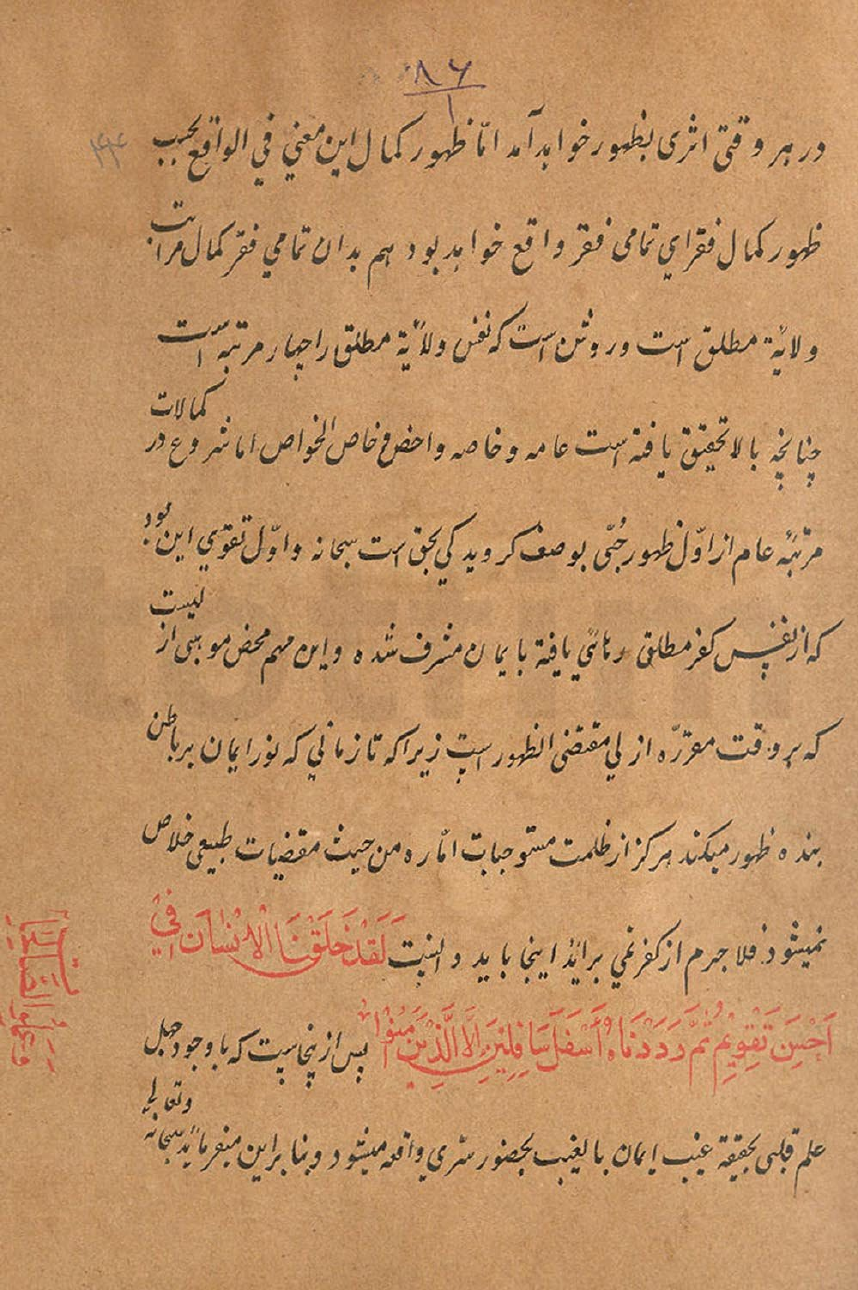 ۸۶
۱
۴۴
در هر وقتی اثری بظهور خواهد آمد امّا ظهور کمال این معنی فی الواقع بحسب
ظهور کمال فقرای تمامی فقر واقع خواهد بود هم بدان تمامی فقر کمال مراتب
ولایة مطلق است و روشن است که نفس ولایة مطلق را چهار مرتبه است
چنانچه بالا تحقیق یافته است عامه و خاصه و اخص و خاص الخواص اما شروع در کمالات
مرتبهٔ عام از اوّل ظهور حُبّی بوصف کرویدکی بحق است سبحانه و اوّل تقوی این بود
که از نفس کفر مطلق رهائی یافته بایمان مشرف شده و این مهم محض موهبتی از لیست
که بر وقت مقرّره ازلی مقتضی الظهور است زیرا که تا زمانی که نور ایمان بر باطن
بنده ظهور میکند هرکز از ظلمت مستوجبات امّاره من حیث مقضیات طبیعی خلاص
نمیشود فلاجرم از کفر نمی برآید اینجا باید دانست لَقَدْ خَلَقْنَا الْاِنْسَانَ فِیْ
اَحْسَنِ تَقْوِیْمٍ ثُمَّ رَدَدْنَاهُ اَسْفَلَ سَافِلِیْنَ اِلَّا الَّذِیْنَ آمَنُوْا پس از ینجاست که با وجود جهل
علم قلبی بحقیقة غیب ایمان بالغیب بحضور سرّی واقع میشود و بنابراین میفرماید سبحانهٔ وتعالی